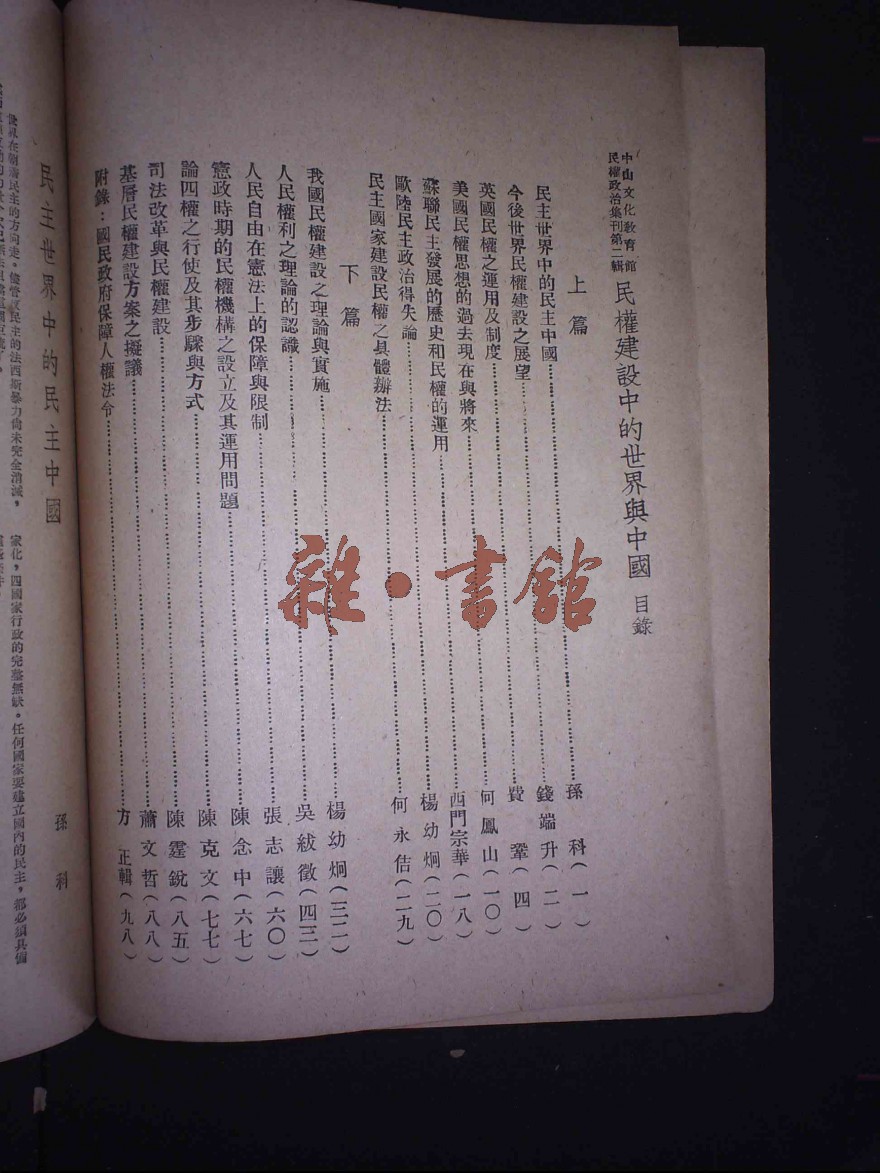 中山文化教育館
民權政治集刊第二輯
民權建設中的世界與中國 目錄
上篇
民主世界中的民主中國……孫科(一)
今後世界民權建設之展望……錢端升(二)
英國民權之運用及制度……費鞏(四)
美國民權思想的過去現在與將來……何鳳山(一〇)
蘇聯民主發展的歷史和民權的運用……西門宗華(一八)
歐陸民主政治得失論……楊幼炯(二〇)
民主國家建設民權之具體辦法……何永佶(二九)
下篇
我國民權建設之理論與實施……楊幼炯(三二)
人民權利之理論的認識……吳紱徵(四三)
人民自由在憲法上的保障與限制……張志讓(六〇)
憲政時期的民權機構之設立及其運用問題……陳念中(六七)
論四權之行使及其步驟與方式……陳克文(七七)
司法改革與民權建設……陳霆銳(八五)
基層民權建設方案之擬議……蕭文哲(八八)
附錄:國民政府保障人權法令……方正輯(九八)
雜·書館
民主世界中的民主中國
孫科
世界在朝着民主的方向走,儘管反民主的法西斯暴力尙未完全消滅,
家化,四國家行政的完整無缺。任何國家要建立國內的民主,都必須具備